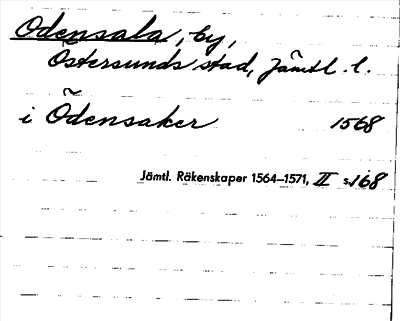 Odensala, by,
Östersunds stad, Jämtl. l.
i Ödensaker 1568
Jämtl. Räkenskaper 1564–1571, II s. 168